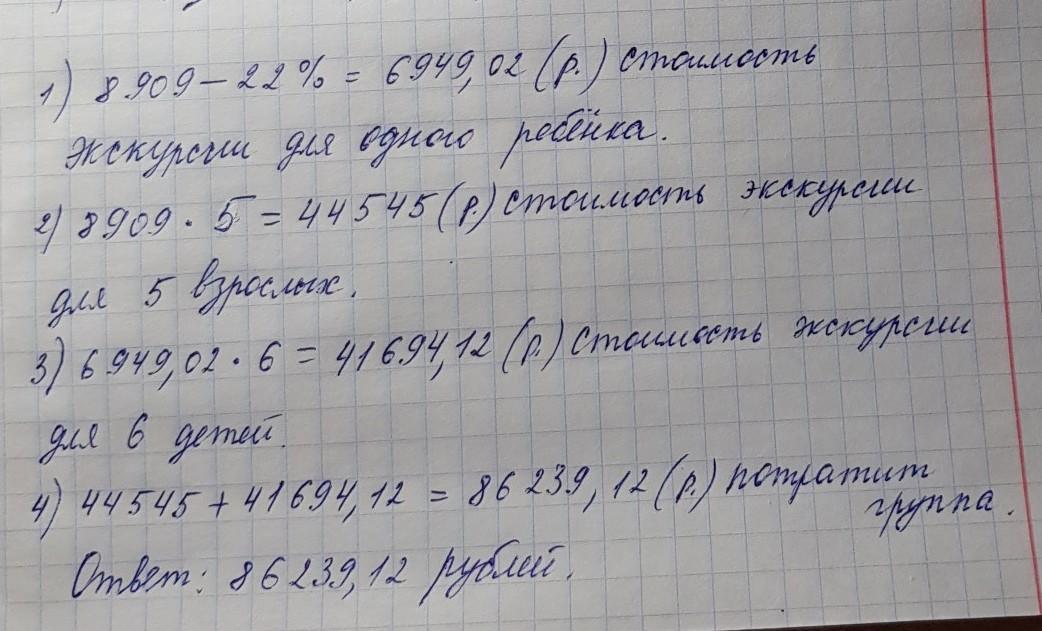 1) 8909 – 22% = 6949,02 (р.) стоимость
экскурсии для одного ребёнка.
2) 8909 · 5 = 44545 (р.) стоимость экскурсии
для 5 взрослых.
3) 6949,02 · 6 = 41694,12 (р.) стоимость экскурсии
для 6 детей.
4) 44545 + 41694,12 = 86239,12 (р.) потратит
группа.
Ответ: 86239,12 рублей.